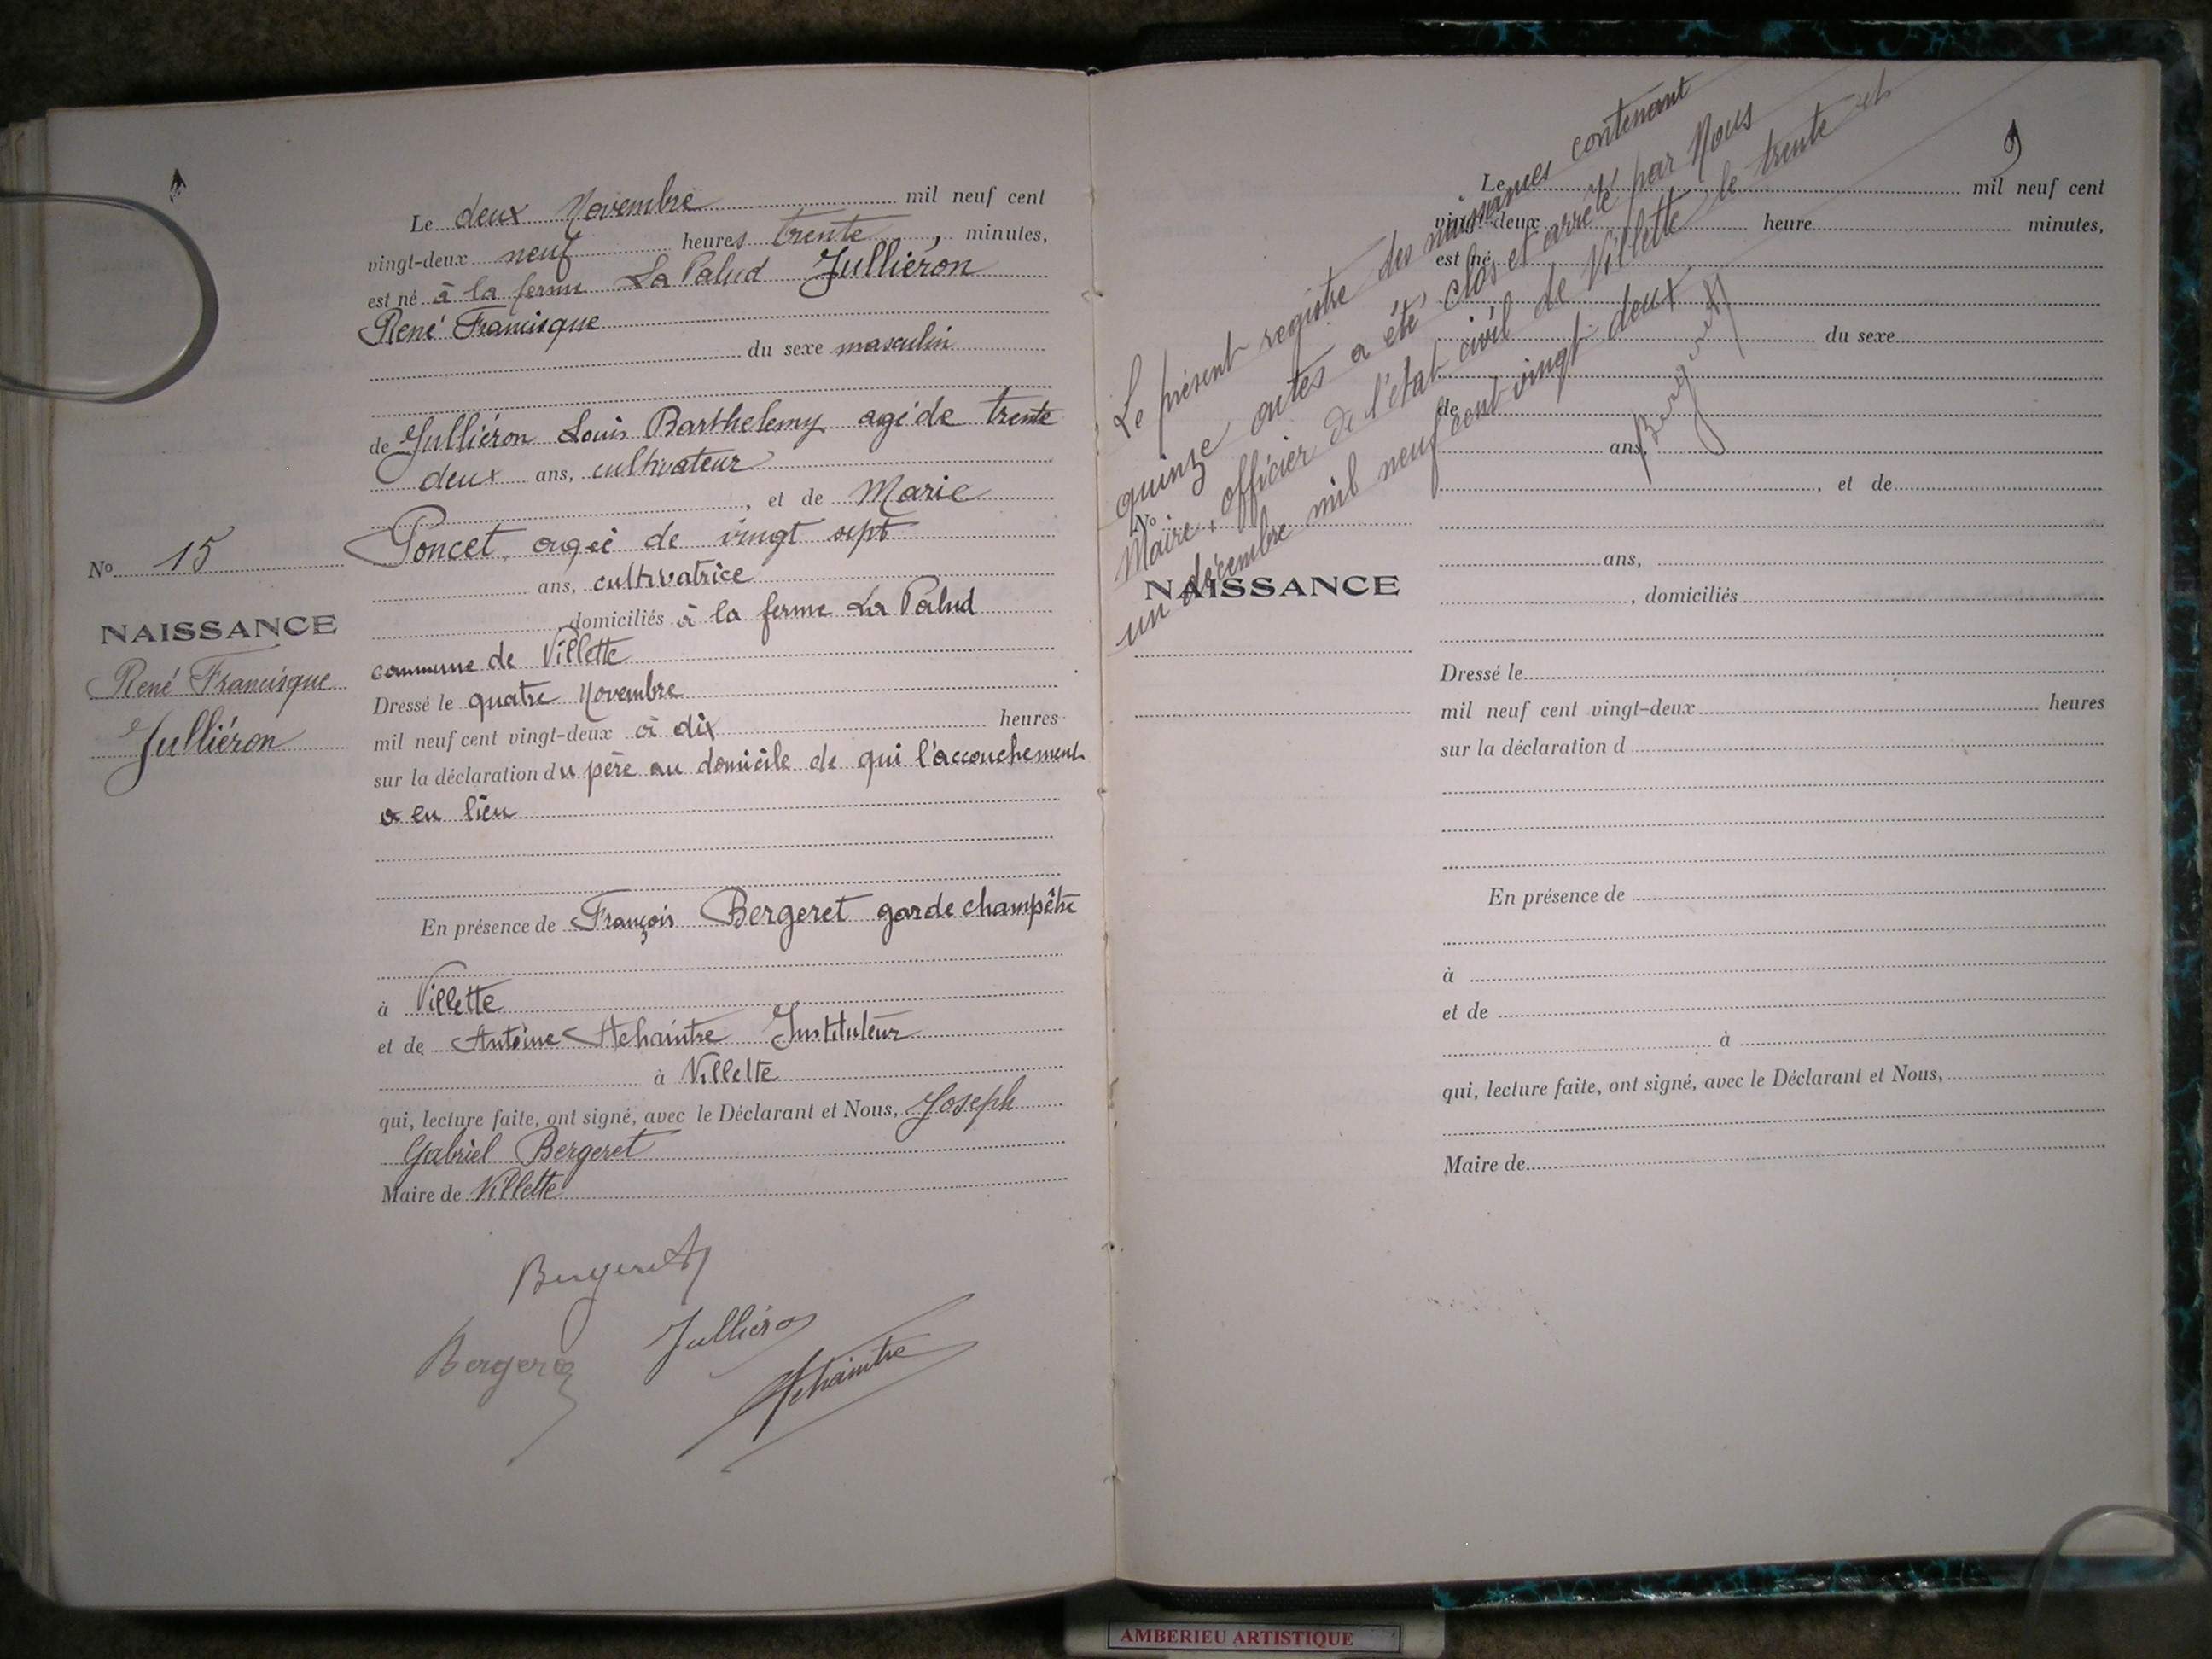 Le deux Novembre mil neuf cent
vingt-deux neuf heures trente, minutes,
est né à la ferme La Palud Julliéron
René Francisque
du sexe masculin
de Julliéron Louis Barthelemy agé de trente
deux ans, cultivateur
, et de Marie
Poncet, agée de vingt sept
ans, cultivatrice
, domiciliés à la ferme La Palud
commune de Villette
Dressé le quatre Novembre
mil neuf cent vingt-deux à dix heures
sur la déclaration du père au domicile de qui l'accouchement
a eu lieu
En présence de François Bergeret garde champêtre
à Villette
et de Antoine Achaintre Instituteur
à Villette
qui, lecture faite, ont signé, avec le Déclarant et Nous, Joseph
Gabriel Bergeret
Maire de Villette
Bergeret
Julliéron
Bergeret
Achaintre
No 15
NAISSANCE
René Francisque
Julliéron
9
Le présent registre des naissances contenant
quinze actes a été clos et arrêté par Nous
Maire, officier de l'état civil de Villette, le trente et
un décembre mil neuf cent vingt deux
Bergeret
Le mil neuf cent
vingt-deux heure minutes,
est né
du sexe
de
ans,
, et de
ans,
, domiciliés
No
NAISSANCE
Dressé le
mil neuf cent vingt-deux heures
sur la déclaration d
En présence de
à
et de
à
qui, lecture faite, ont signé, avec le Déclarant et Nous,
Maire de
AMBERIEU ARTISTIQUE